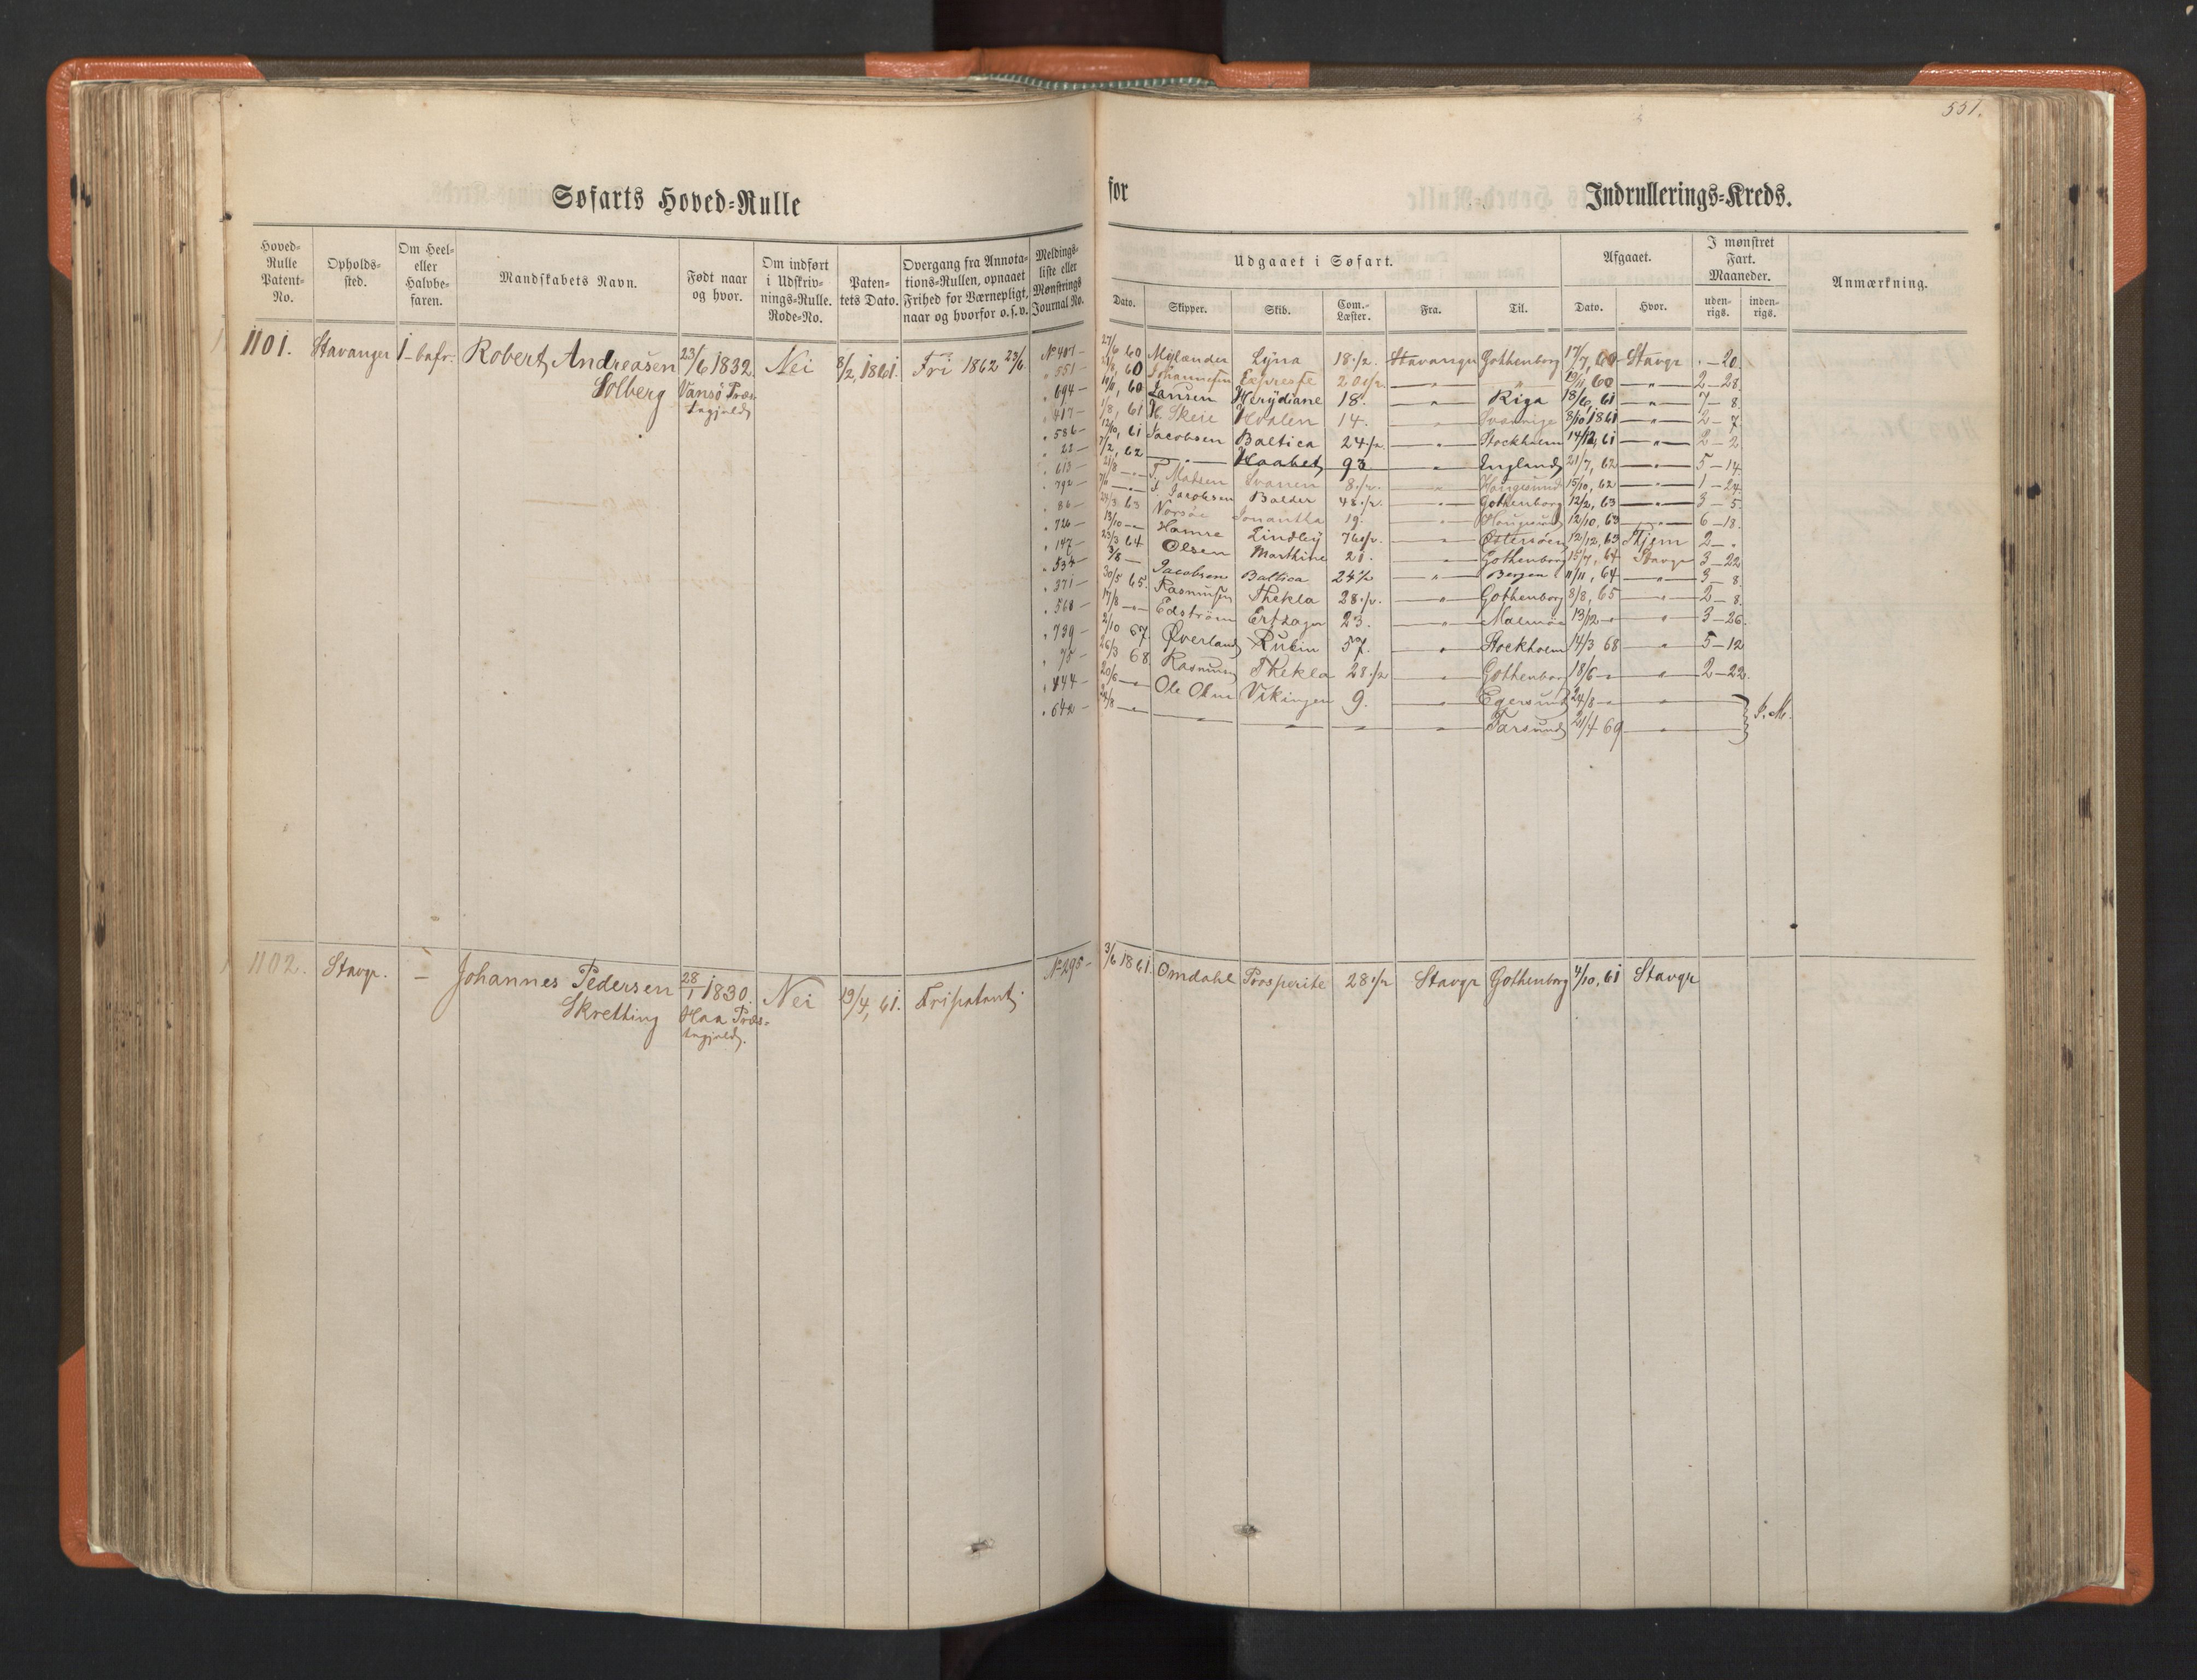 551.
Søfarts Hoved-Rulle
for
Indrullerings-Kreds.
Hoved-Rulle Patent-No.
Opholds-sted.
Om Heel- eller Halvbe-faren.
Mandskabets Navn.
Født naar og hvor.
Om indført i Udskriv-nings-Rulle. Rode-No.
Paten-tets Dato.
Overgang fra Annota-tions-Rullen, opnaaet Frihed for Værnepligt, naar og hvorfor o. s. v.
Meldings-liste eller Mønstrings Journal No.
Udgaaet i Søfart.
Dato.
Skipper.
Skib.
Com.-Læster.
Fra.
Til.
Afgaaet.
Dato.
Hvor.
I mønstret Fart. Maaneder.
uden-rigs.
inden-rigs.
Anmærkning.
1101. Stavanger 1-bafr. Robert Andreasen 23/6 1832. Nei 8/2, 1861. Fri 1862 23/6
Solberg Vansö Præs-
tegjeld
No 401 — 27/6 60 Mylænder Lyna 18 1/2. Stavanger Gothenborg 17/7, 60 Stavgr . — 20.
" 551 — 21/8, 60 Johannesen Expresse 20 1/2 — " — " 19/11, 60 — " — 2 — 28.
" 694 — 19/11, 60 Jansen 18. — " — Riga 18/6, 61 — " — 7 — 8.
" 417 — 1/8, 61 H. Skeie Hvalen 14. — " — 8/10 1861 — " — 2 — 7.
" 586 — 12/10, 61 Jacobsen Baltica 24 1/2 — " — Stockholm 14/12, 61 — " — 2 — 2
" 22 — 7/2, 62 — " — Haabet 93 — " — England 21/7, 62 — " — 5 — 14.
" 613 — 21/8 — " — T. Madsen Svanen 8 1/2. — " — Haugesund 15/10, 62 — " — 1 — 24.
" 792 — — " — Jacobsen Balder 48 1/2. — " — Gothenborg 12/2, 63 — " — 3 — 5.
" 86 — 24/3 63 Norsöe Jonantha 19. — " — Haugesund 12/10, 63 — " — 6 — 18.
" 726 — 13/10 — " — Hamre Lindley 76 1/2. — " — Østersöen 12/12, 63 Hjem 2 — ".
" 147 — 23/3 64 Olsen Marthine 21. — " — Gothenborg 15/7, 64 Stavgr 3 — 22
" 534 — 3/8 — Jacobsen Baltica 24 1/2 — " — Bergen 11/11, 64 — " — 3 — 8.
" 371 — 30/5 65. Rasmusen Thekla 28 1/2. — " — Gothenborg 8/8, 65 — " — 2 — 8.
" 568 — 17/8 — " — Edström 23. — " — Malmöe 13/12 — " — " — 3 — 26.
" 739 — 2/10 67. Øverland Rubin 57. — " — Stockholm 14/3 68 — " — 5 — 12
" 75 — 26/3 68 Rasmus Thekla 28 1/2 — " — Gothenborg 18/6 — " — " — 2 — 22.
" 444 — 20/6 — " — Ole Olsen Vikingen 9. — " — Egersund 24/8 — " — " —
" 642 — 24/8 — " — " — " — " — " — Farsund 21/4 69 — " — I. M.
1102. Stavgr. — Johannes Pedersen 28/1 1830. Nei 19/4, 61. Fripatent. No 295 — 3/6 1861. Omdahl Prosperite 28 1/2 Stavgr Gothenborg 4/10, 61 Stavgr
Skretting Haa Præs-
tegjeld.